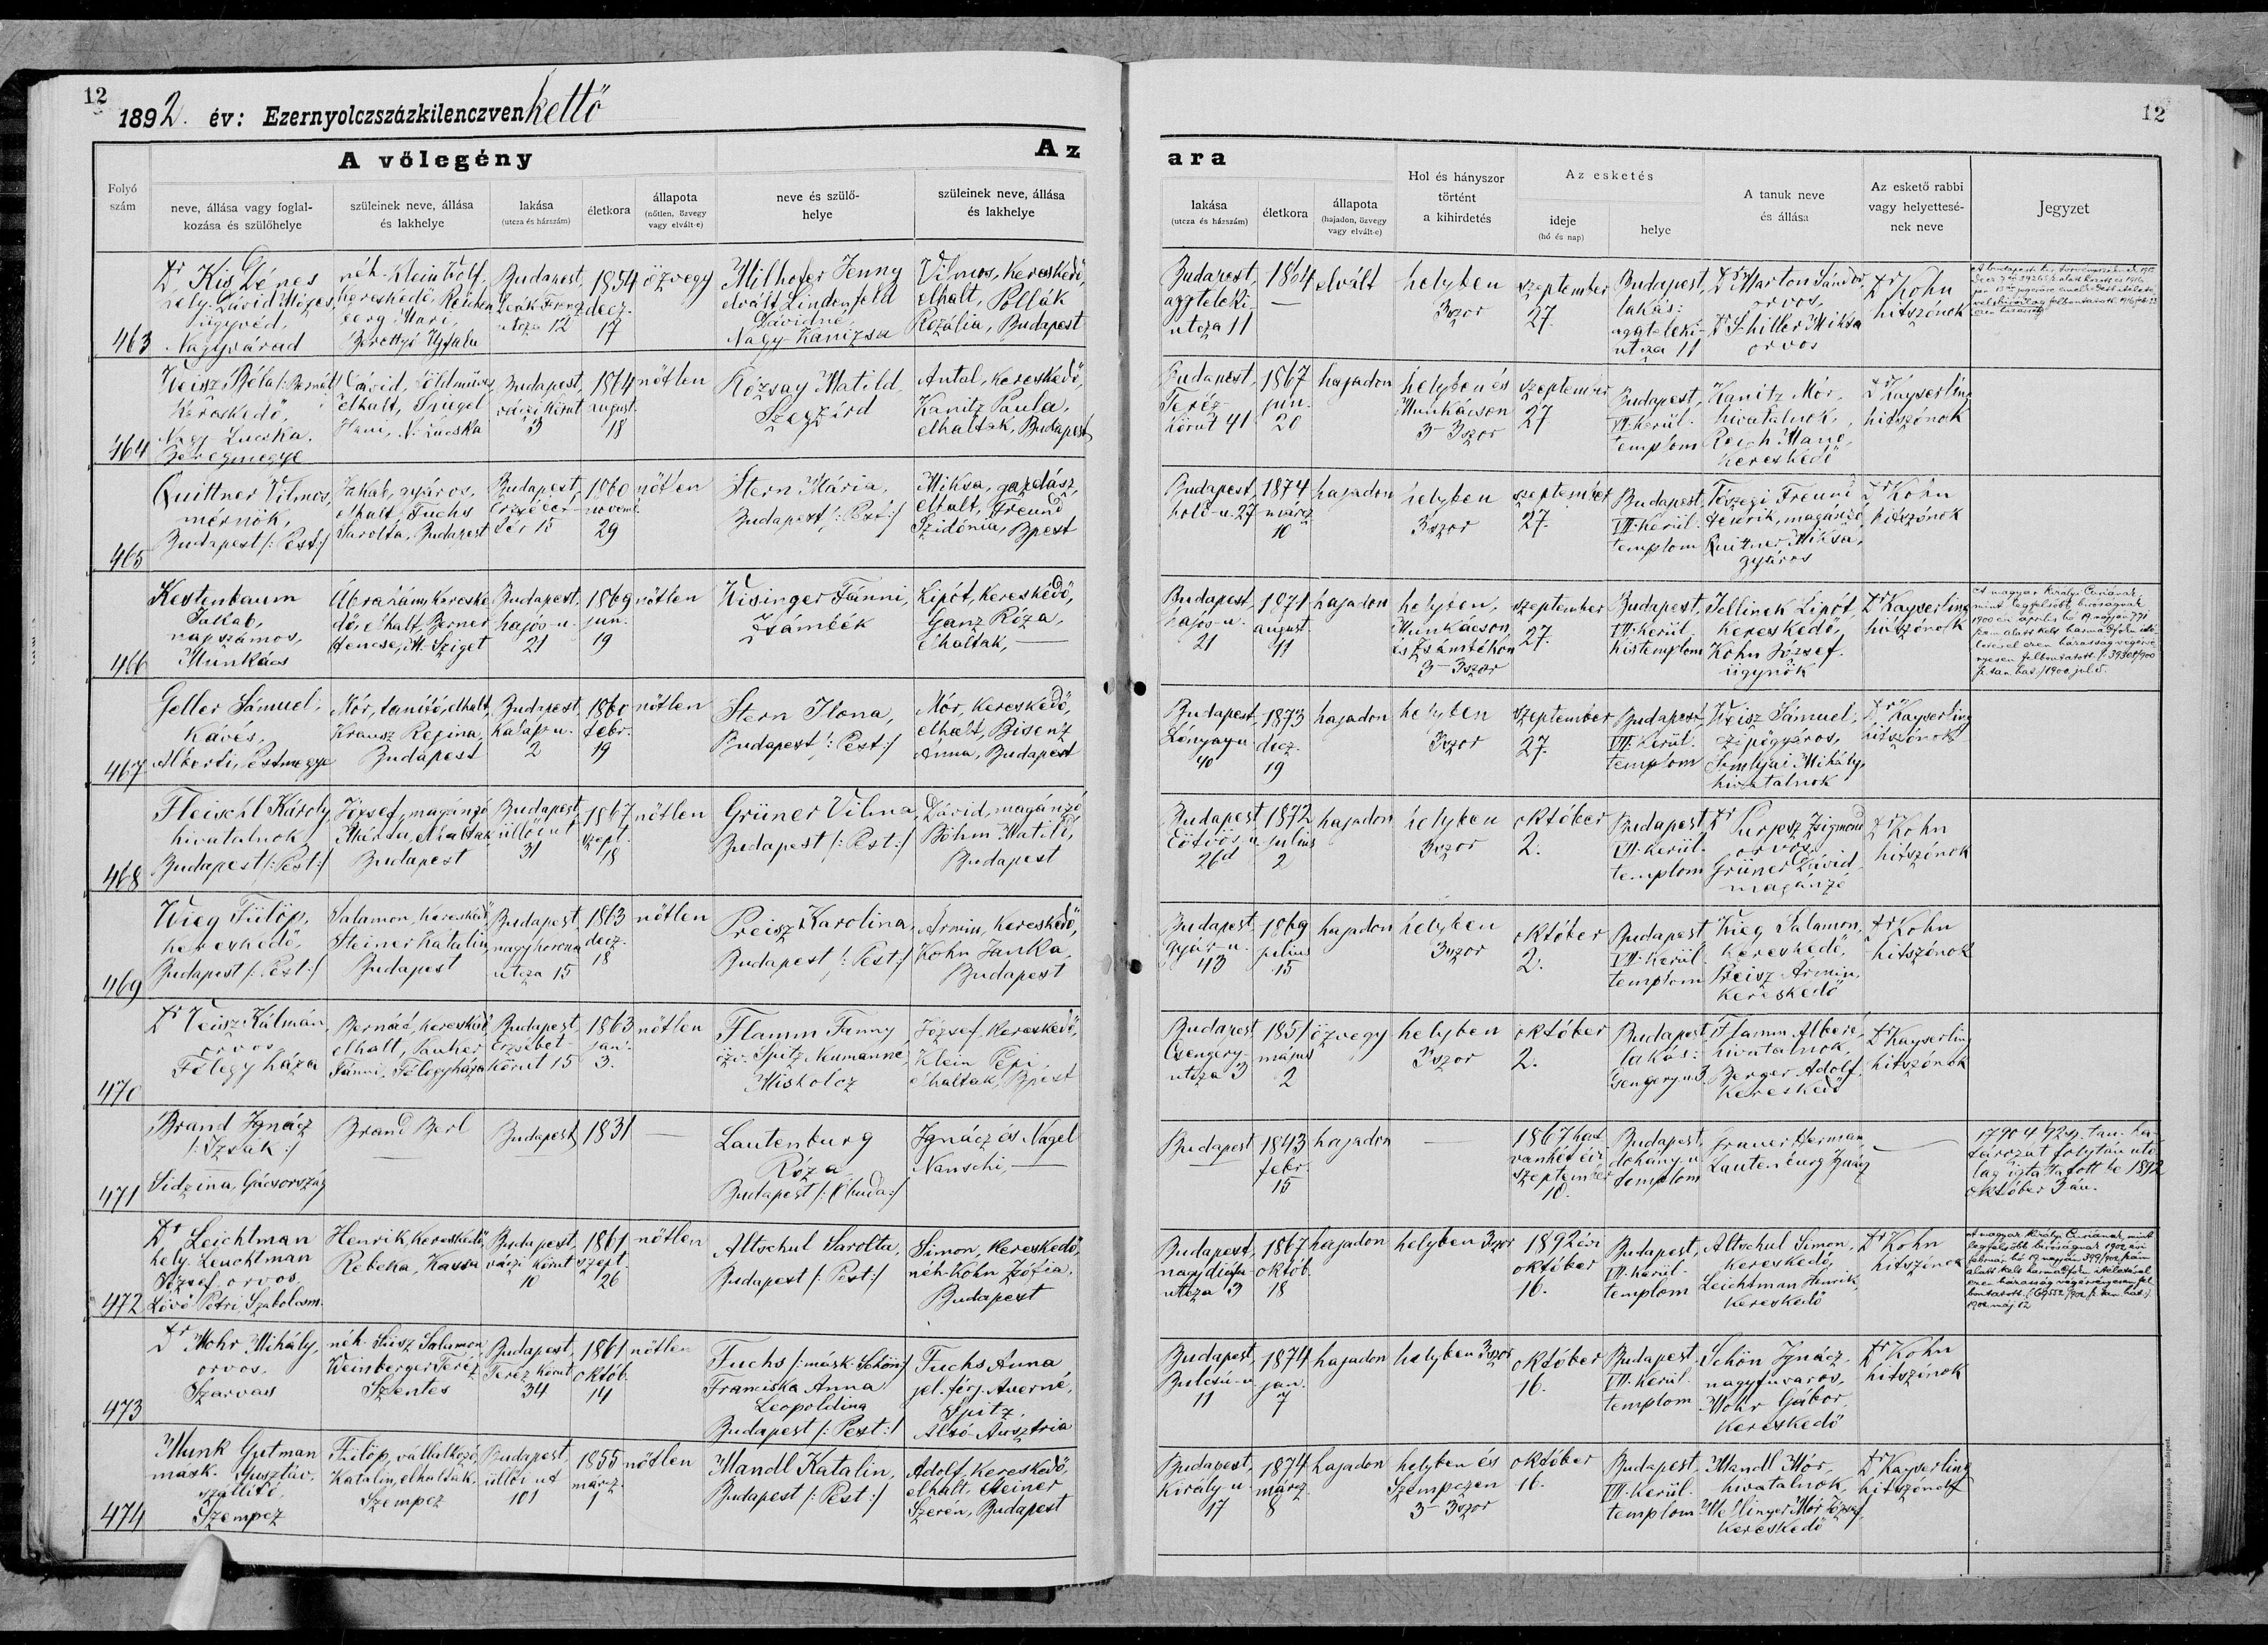 12
1892. év: Ezernyolczszázkilenczvenkettő
12
A vőlegény
Az
ara
Folyó szám
neve, állása vagy foglal-
kozása és szülőhelye
szüleinek neve, állása
és lakhelye
lakása
(utcza és házszám)
életkora
állapota
(nőtlen, özvegy
vagy elvált-e)
neve és szülő-
helye
szüleinek neve, állása
és lakhelye
lakása
(utcza és házszám)
életkora
állapota
(hajadon, özvegy
vagy elvált-e)
Hol és hányszor
történt
a kihirdetés
Az esketés
ideje
(hó és nap)
helye
A tanuk neve
és állása
Az eskető rabbi
vagy helyettesé-
nek neve
Jegyzet
463
Dr Kis Dénes
hely. Dávid Mózes,
ügyvéd,
Nagyvárad
néh. Klein Wolf
kereskedő,
Berettyó Ujfalu
Budapest,
Deák Ferencz
utcza 12
1854
decz.
17
özvegy
Milhofer Jenny
elvált Lindenfeld
Dávidné,
Nagy-Kanizsa
Vilmos, kereskedő,
elhalt, Pollák
Rozália, Budapest
Budapest,
aggteleki-
utcza 11
1864
—
elvált
helyben
3szor
szeptember
27.
Budapest,
lakás:
aggteleki-
utcza 11
Dr Marton Sándor,
orvos,
Dr Schiller Miksa
orvos
Dr Kohn
hitszónok
464
Weisz Béla /: Bernát :/
kereskedő,
Nagy-Lucska.
Beregmegye
Dávid, földműves,
elhalt, Spiegel
Hani, N. Lucska
Budapest,
váczi körut
3
1864
august.
18
nőtlen
Rózsay Matild,
Szegzárd
Antal, kereskedő,
Kanitz Paula,
elhaltak, Budapest
Budapest,
Teréz-
körut 41
1867
jun.
20
hajadon
helyben és
Munkácson
3-3szor
szeptember
27
Budapest,
VII. kerül.
templom
Kanitz Mór,
hivatalnok,
Reich Manó,
kereskedő
Dr Kayserling
hitszónok
465
Quittner Vilmos,
mérnök,
Budapest /: Pest :/
Jakab, gyáros,
elhalt, Fuchs
Sarolta, Budapest
Budapest,
Erzsébet-
tér 15
1860
novemb.
29
nőtlen
Stern Mária,
Budapest /: Pest :/
Miksa, gazdász,
elhalt, Freund
Szidónia, Bpest
Budapest,
hold-u. 27
1874
márcz
10
hajadon
helyben
3szor
szeptember
27.
Budapest,
VII. kerül.
templom
Tószegi Freund
Henrik, magánzó,
Quittner Miksa,
gyáros
Dr Kohn
hitszónok
466
Kestenbaum
Jakab,
napszámos,
Munkács
Ábrahám, kereske-
dő, elhalt, Berner
Hencse, M. Sziget
Budapest,
hajós-u.
21
1869
jun.
19
nőtlen
Wisinger Fánni,
Zsámbék
Lipót, kereskedő,
Ganz Róza,
elhaltak, —
Budapest,
hajós-u.
21
1871
august.
11
hajadon
helyben,
Munkácson
és Zsámbékon
3-3szor
szeptember
27.
Budapest,
VII. kerül.
kis templom
Jellinek Lipót,
kereskedő,
Kohn József,
ügynök
Dr Kayserling
hitszónok
A magyar királyi Curiának,
mint legfelsőbb biróságnak
467.
Geller Sámuel,
kávés,
Alberti, Pestmegye
Mór, tanitó, elhalt,
Krausz Regina,
Budapest
Budapest,
kalap-u.
2
1860
febr.
19
nőtlen
Stern Ilona,
Budapest /: Pest :/
Mór, kereskedő,
elhalt, Bisenz
Anna, Budapest
Budapest,
Lónyay-u
40
1873
decz.
19
hajadon
helyben
3szor
szeptember
27.
Budapest,
VII. kerül.
templom
Weisz Sámuel,
czipőgyáros,
Somlyai Mihály,
hivatalnok
Dr Kayserling
hitszónok
468
Fleischl Károly,
hivatalnok,
Budapest /: Pest :/
József, magánzó,
elhaltak
Budapest
Budapest,
üllői ut
31
1867
szept.
18
nőtlen
Grüner Vilma,
Budapest /: Pest :/
Dávid, magánzó,
Böhm Matild,
Budapest
Budapest,
Eötvös u.
26d
1872
julius
2
hajadon
helyben
3szor
október
2.
Budapest,
VII. kerül.
templom
Dr Purjesz Zsigmond
orvos,
Grüner Dávid,
magánzó
Dr Kohn
hitszónok
469
Wieg Fülöp,
kereskedő,
Budapest /: Pest :/
Salamon, kereskedő,
Steiner Katalin,
Budapest
Budapest,
nagykorona
utcza 15
1863
decz.
18
nőtlen
Preisz Karolina,
Budapest /: Pest :/
Ármin, kereskedő,
Kohn Janka,
Budapest
Budapest,
gyár-u.
43
1869
julius
15
hajadon
helyben
3szor
október
2.
Budapest,
VII. kerül.
templom
Wieg Salamon,
kereskedő,
Preisz Ármin,
kereskedő
Dr Kohn
hitszónok
470
Dr Veisz Kálmán,
orvos,
Félegyháza
Bernát, kereskedő,
elhalt,
Fánni, Félegyháza
Budapest,
Erzsébet-
körut 15
1863
jan.
3.
nőtlen
Flamm Fanny
özv. Spitz Neumanné,
Miskolcz
József, kereskedő,
Klein Pepi,
elhaltak, Bpest
Budapest,
Csengery-
utcza 3
1851
május
2
özvegy
helyben
3szor
október
2.
Budapest,
lakás:
Csengery u. 3
Flamm Albert,
hivatalnok,
Berger Adolf,
kereskedő
Dr Kayserling
hitszónok
471
Brand Ignácz
/: Izsák :/
Sidzina, Gácsország
Brand Berl
—
Budapest
1831
—
Lautenburg
Róza
Budapest /: Óbuda :/
Ignácz és Nagel
Nanschi, —
Budapest
—
1843
febr.
15
hajadon
—
1867 hat-
vanhét évi
szeptember
10.
Budapest,
dohány-u
templom
Grauer Herman,
Lautenburg Ignácz
—
tározat folytán utó-
lag igtattatott be 1892
október 3án.
472
Dr Leichtman
hely. Leuchtman
József, orvos,
Lövő Petri, Szabolcsm.
Henrik, kereskedő,
Rebeka, Kassa
Budapest,
váczi körut
10
1861
szept.
26
nőtlen
Altschul Sarolta,
Budapest /: Pest :/
Simon, kereskedő,
néh. Kohn Zsófia,
Budapest
Budapest,
nagydiófa-
utcza 3
1867
októb.
18
hajadon
helyben 3szor
1892 évi
október
16.
Budapest,
VII. kerül.
templom
Altschul Simon,
kereskedő,
Leichtman Henrik,
kereskedő
Dr Kohn
hitszónok
A magyar királyi Curiának, mint
legfelsőbb biróságnak 1902 évi
473
Dr Mohr Mihály,
orvos,
Szarvas
néh. Süsz Salamon
Weinberger Teréz,
Szentes
Budapest,
Teréz körut
34
1861
októb.
14
nőtlen
Fuchs /: másk. Schön :/
Franciska Anna
Leopoldina
Budapest /: Pest :/
Fuchs Anna
jel. férj. Auerné,
Spitz,
Alsó-Ausztria
Budapest,
Bulcsu-u
11
1874
jan.
7
hajadon
helyben 3szor
október
16.
Budapest,
VII. kerül.
templom
Schön Ignácz,
nagyfuvaros,
Mohr Gábor,
kereskedő
Dr Kohn
hitszónok
474
Munk Gutman
másk. Gusztáv,
szállitó,
Szempcz
Fülöp, vállalkozó,
Katalin, elhaltak,
Szempcz
Budapest,
üllői ut
101
1855
márcz.
1
nőtlen
Mandl Katalin,
Budapest /: Pest :/
Adolf, kereskedő,
elhalt, Steiner
Szerén, Budapest
Budapest,
Király-u.
17
1874
márcz.
8
hajadon
helyben és
Szempczen
3-3szor
október
16.
Budapest,
VII. kerül.
templom
Mandl Mór,
hivatalnok,
Wellinger Mór József,
kereskedő
Dr Kayserling
hitszónok